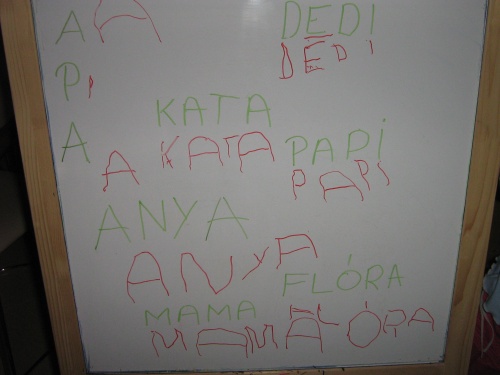 A A
P P
A A
DEDI
DEDI
KATA
KATA
PAPI
PAPI
ANYA
ANYA
FLÓRA
FLÓRA
MAMA
MAMA